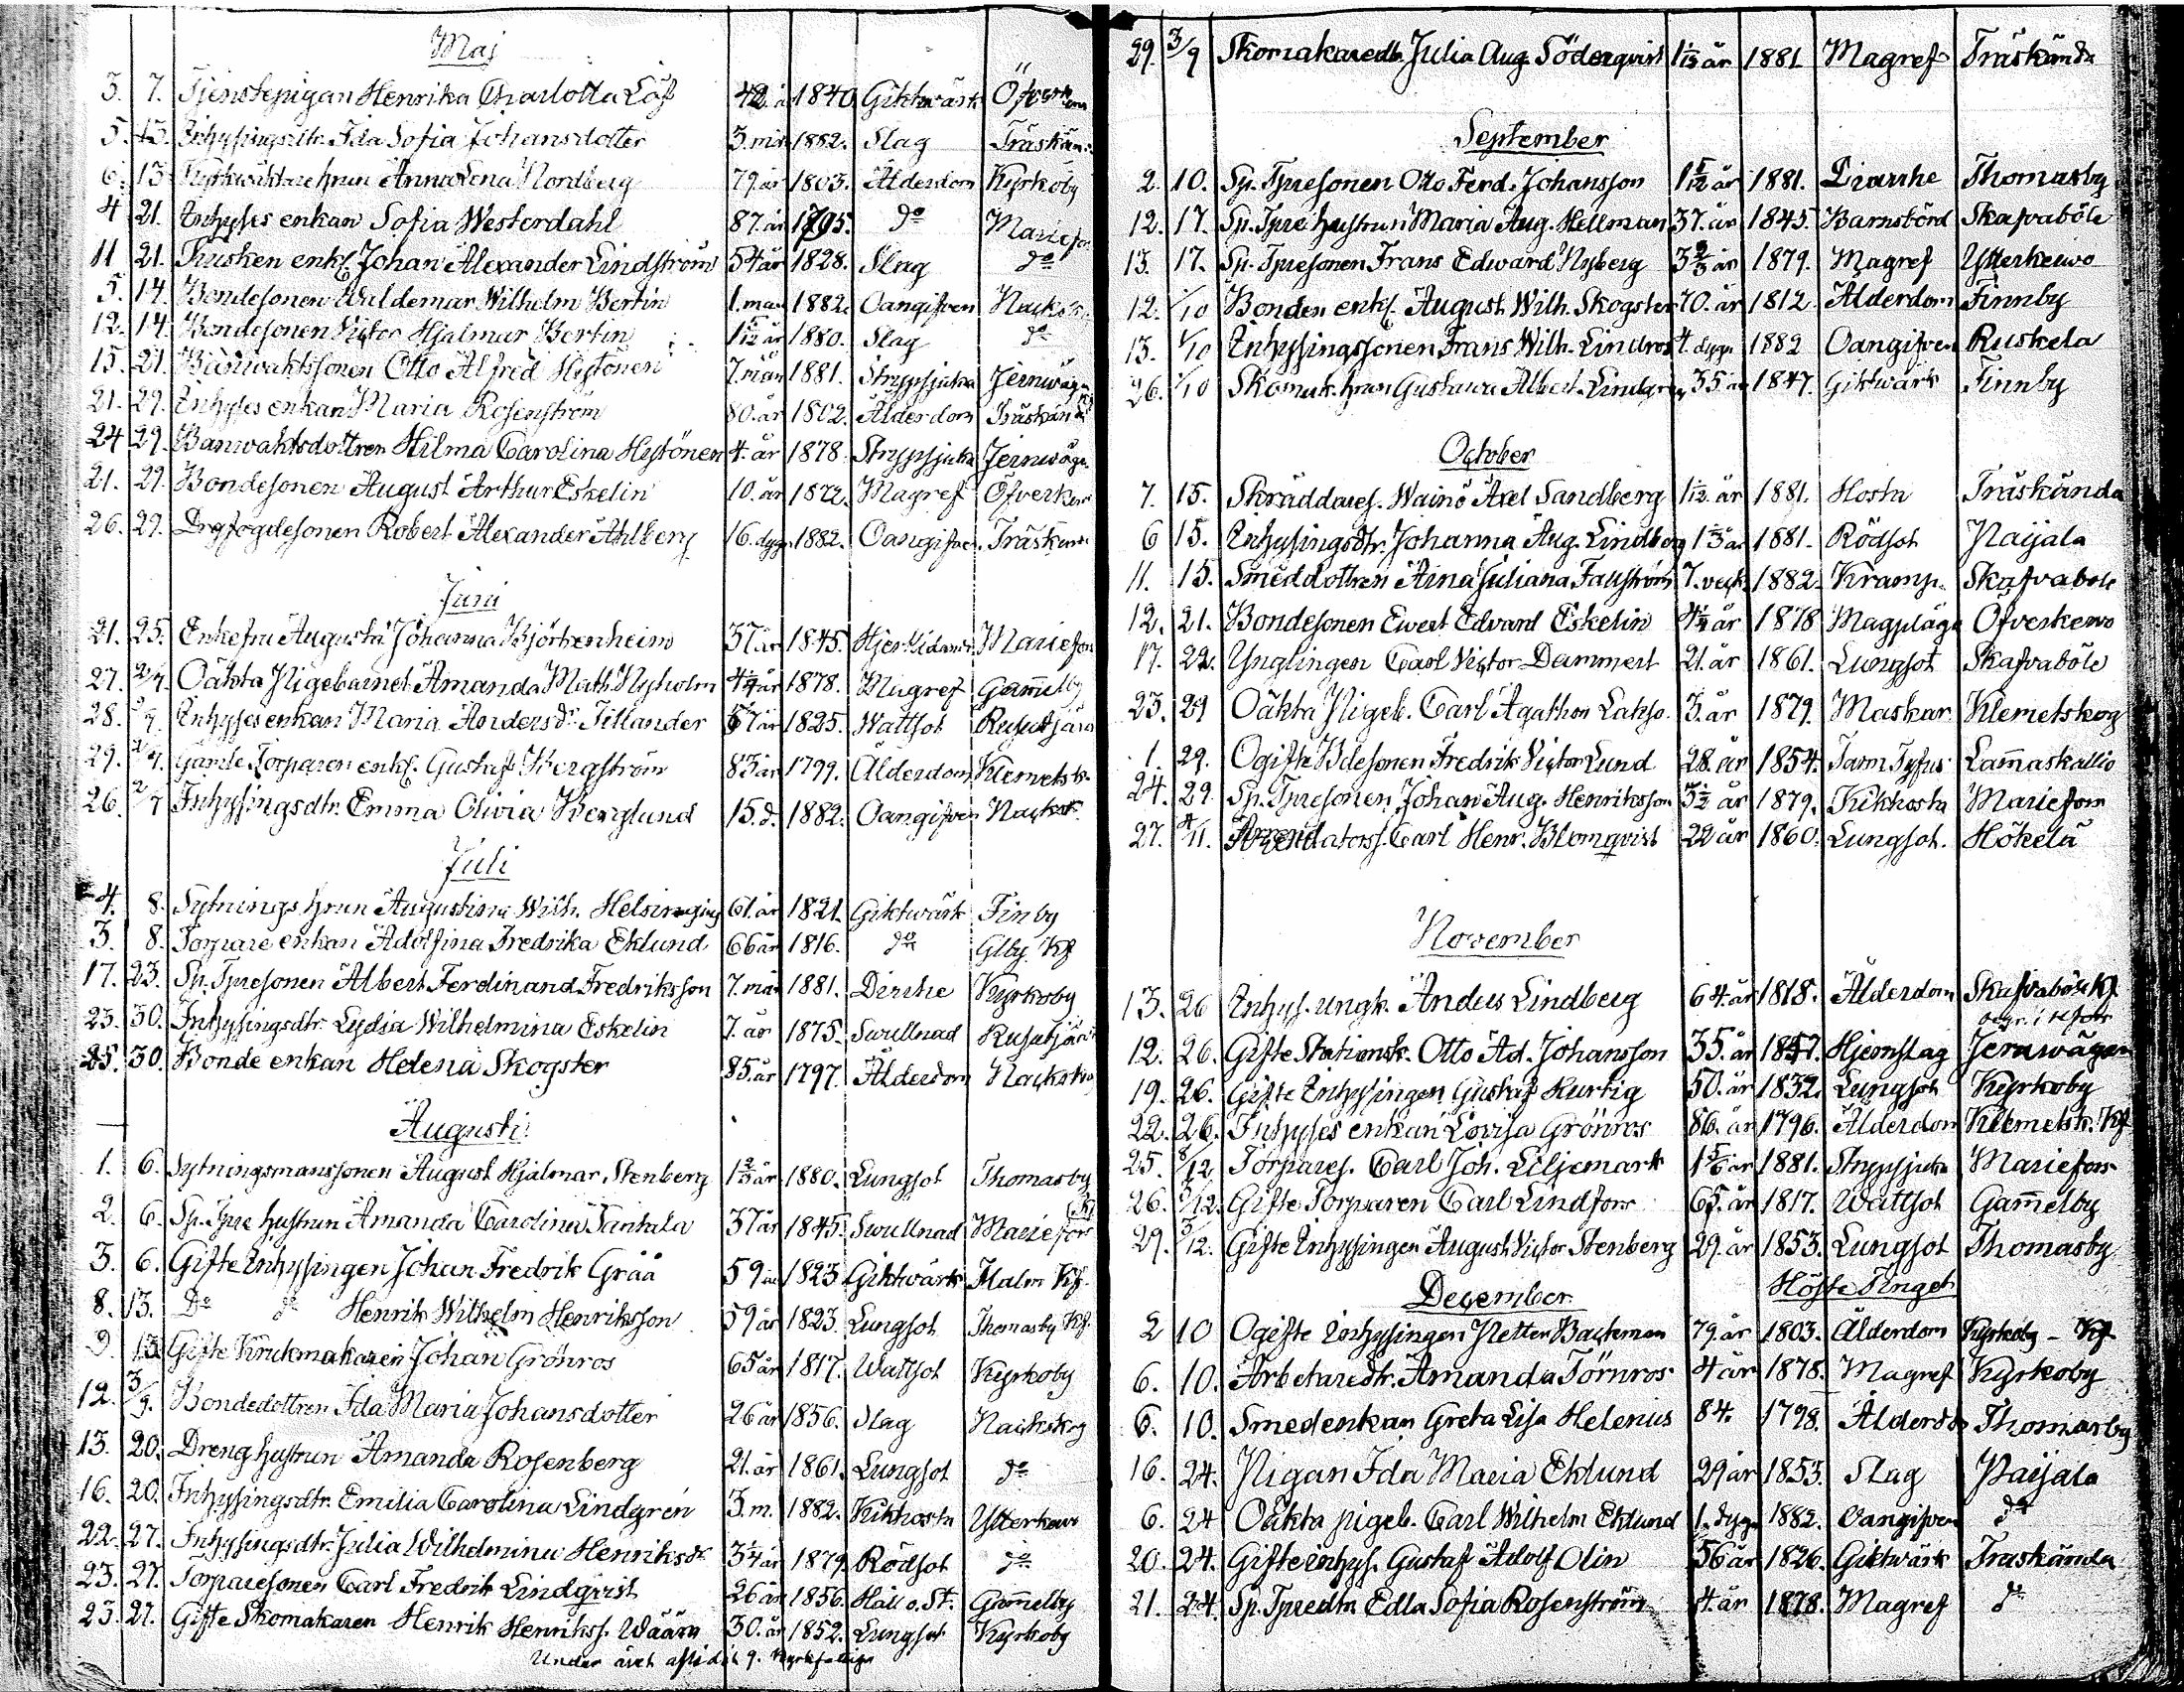 Maj
3. 7. Tjenstepigan Henrika Charlotta Löf 42 å 1840 Giktwärk Öfverk
5. 13. Inhysingsdtr. Ida Sofia Johansdotter 3. mån 1882. Slag Träskän
6. 13 Kyrkwäktare hrun Anna Lena Nordberg 79. år 1803. Ålderdom Kyrkoby
4 21. Inhyses enkan Sofia Westerdahl 87. år 1795. do Mariefo
11 21. Trusken enkl. Johan Alexander Lindström 54 år 1828. Slag do
5. 14. Bondesonen Waldemar Wilhelm Bertin 1. mån 1882. Oangifven Nacksk
12. 14. Bondesonen Victor Hjalmar Bertin 1 5/12 år 1880. Slag do
15. 21. Banwaktssonen Otto Alfred Hytönen 7. mån 1881. Strypsjuka Jernwäge
21. 29. Inhyses enkan Maria Rosenström 80. år 1802. Ålderdom Träskän
24 29. Banwaktsdottren Hilma Carolina Hytönen 4. år 1878 Strypsjuka Jernwäge
21. 29. Bondesonen August Arthur Eskelin 10. år 1872. Magref Öfverken
26. 29. Drgfogdesonen Robert Alexander Ahlberg 16. dygn 1882. Oangifve. Träskän
Juni
21. 25. Enkefru Augusta Johanna Björkenheim 37 år 1845. Mariefors
27. 2/7. Oäkta Pigebarnet Amanda Math. Nyholm 4 1/4 år 1878. Magref Gam̄elby
28. 2/7. Inhyses enkan Maria Andersdr Tillander 57 år 1825. Wattsot Rusutjärv
29. 2/7. Gamle Torparen enkl. Gustaf Bergström 83 år 1799. Ålderdom Klemetsk
26. 2/7 Inhysingsdtr. Emma Olivia Berglund 15. d. 1882. Oangifven Nacksk.
Juli
4. 8. Sytnings hrun Augustina Wilh. Helsingius 61. år 1821. Giktwärk Finby
3. 8. Torpare enkan Adolfina Fredrika Eklund. 66 år 1816. do Glby. Kf
17. 23. Sp. Tpresonen Albert Ferdinand Fredriksson 7. mån 1881. Dirrhe Kyrkoby
23. 30. Inhysingsdtr. Lydia Wilhelmina Eskelin 7. år 1875. Swullnad Rusutjärv
25. 30. Bonde enkan Helena Skogster 85. år 1797. Ålderdom Nacksko
Augusti
1. 6. Sytningsmanssonen August Hjalmar Stenberg 1 2/3 år 1880. Lungsot Thomasby
2. 6. Sp. Tpre hustrun Amanda Carolina Tantala 37 år 1845. Swullnad Mariefors (Kf)
3. 6. Gifte Inhysingen Johan Fredrik Gråå 59 år 1823 Giktwärk Malm Kf.
8. 13. Do do Henrik Wilhelm Henriksson 59 år 1823. Lungsot Thomasby Kf.
9. 13 Gifte Krukmakaren Johan Grönros 65 år 1817. Wattsot Kyrkoby
12. 3/9. Bondedottren Ida Maria Johansdotter 26 år 1856. Slag Nackskog
13. 20. Dreng hustrun Amanda Rosenberg 21. år 1861. Lungsot do
16. 20. Inhysingsdtr. Emilia Carolina Lindgrén 3. m. 1882. Kikhosta Ytterkewo
22. 27. Inhysingsdtr. Julia Wilhelmina Henriksdr 3 1/4 år 1879. Rödsot do
23. 27. Torparesonen Carl Fredrik Lindqvist 26 år 1856. Håll o. St. Gam̄elby
23. 27. Gifte Skomakaren Henrik Henrikss. Wäära 30. år 1852. Lungsot Kyrkoby
Under året aflidit 9.
29. 3/9 Skomakaredtr. Julia Aug. Söderqvist 1 1/12 år 1881. Magref Träskända
September
2. 10. Sp. Tpresonen Otto Ferd. Johansson 1 5/12 år 1881. Diarrhe Thomasby
12. 17. Sp. Tpre hustrun Maria Aug. Hellman 37. år 1845. Barnsbörd Skafvaböle
13. 17. Sp. Tpresonen Frans Edward Nyberg 3 2/3 år 1879. Magref Ytterkewo
12. 1/10 Bonden enkl. August Wilh. Skogster 70. år 1812. Ålderdom Finnby
13. 1/10 Inhysingssonen Frans Wilh. Lindros 4. dygn 1882 Oangifven Ruskela
26. 1/10 Skomak. hrun Gustava Albert. Lindgren 35 år 1847. Giktwärk Finnby
October
7. 15. Skräddares. Wainö Axel Sandberg 1 1/12. år 1881. Hosta Träskända
6 15. Inhysingsdtr. Johanna Aug. Lindberg 1 2/3 år 1881. Rödsot Paijala
11. 15. Smeddottren Aina Juliana Fallström 7. veck. 1882. Kramp. Skafvaböle
12. 21. Bondesonen Ewert Edvard Eskelin 4 1/4 år 1878 Magplåga Öfverkewo
17. 22. Ynglingen Carl Victor Dammert 21. år 1861. Lungsot Skafvaböle
23. 29 Oäkta Pigeb. Carl Agathon Lakso. 3. år 1879. Maskar Klemetskog
1. 29. Ogifte Bdesonen Fredrik Victor Lund 28. år 1854. Tarm Tyfus Lam̄askallio
24. 29. Sp. Tpresonen Johan Aug. Henriksson 3 1/2 år 1879. Kikhosta Mariefors
27. 4/11. Arrendatorss. Carl Henr. Blomqvist 22 år 1860. Lungsot. Hökelä
November
13. 26 Inhys. ungk. Anders Lindberg 64. år 1818. Ålderdom Skafvaböle Kf
begr. i H:fors
12. 26. Gifte Stationsk. Otto Ad. Johansson 35. år 1847. Hjernslag Jernwägen
19. 26. Gifte Inhysingen Gustaf Kurtig 50. år 1832. Lungsot Kyrkoby
22. 26. Inhyses enkan Lovisa Grönros 86. år 1796. Ålderdom Klemetsk. Kf
25. 3/12 Torpares. Carl Joh. Liljemark 1 5/6 år 1881. Strypsjuka Mariefors
26. 3/12. Gifte Torparen Carl Lindfors 65. år 1817. Wattsot Gam̄elby
29. 3/12. Gifte Inhysingen August Victor Stenberg 29. år 1853. Lungsot Thomasby
December. Höste Tinget
2 10 Ogifte Inhysingen Petter Backman 79. år 1803. Ålderdom Kyrkoby - Kf
6. 10. Arbetaredtr. Amanda Törnros 4 år 1878. Magref Kyrkoby
6. 10. Smedenkan Greta Lisa Helenius 84. 1798. Ålderdo Thomasby
16. 24. Pigan Ida Maria Eklund 29 år 1853. Slag Paijala
6. 24 Oäkta pigeb. Carl Wilhelm Eklund 1. dygn 1882. Oangifven do
20. 24. Gifte inhys. Gustaf Adolf Olin 56 år 1826. Giktwärk Träskända
21. 24. Sp. Tpredtr. Edla Sofia Rosenström 4. år 1878. Magref do